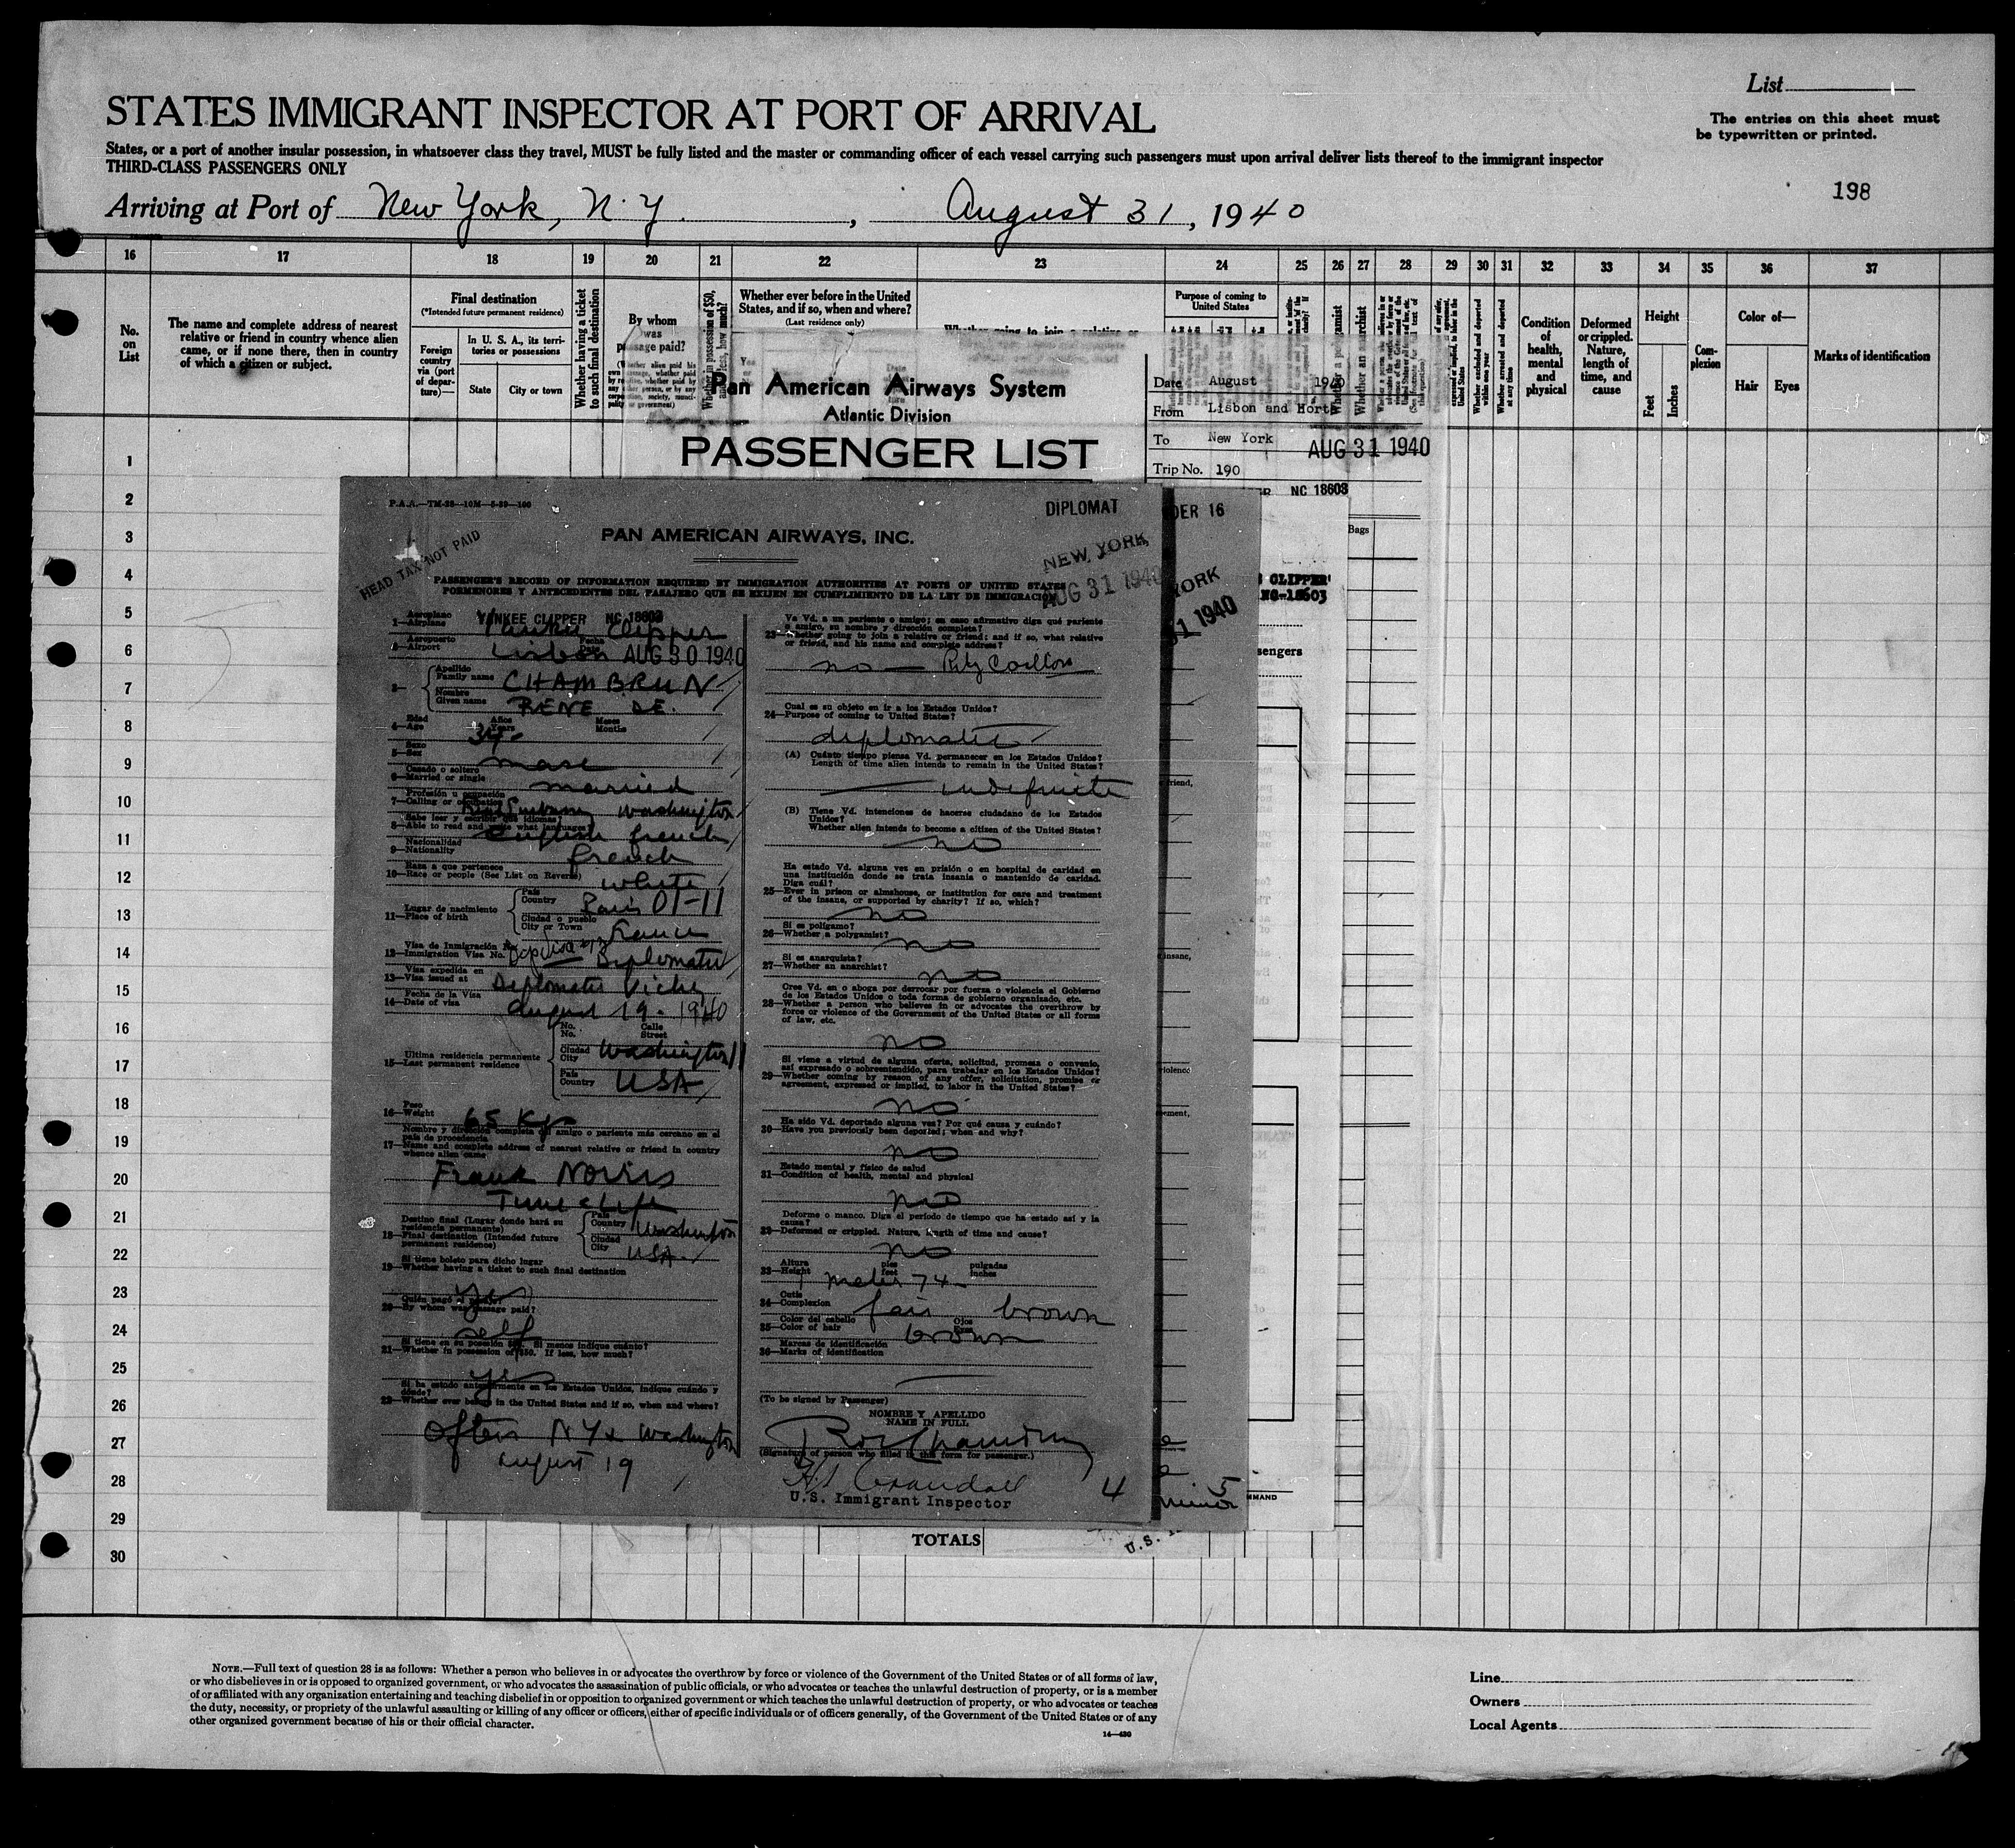 List
STATES IMMIGRANT INSPECTOR AT PORT OF ARRIVAL
The entries on this sheet must
be typewritten or printed.
States, or a port of another insular possession, in whatsoever class they travel, MUST be fully listed and the master or commanding officer of each vessel carrying such passengers must upon arrival deliver lists thereof to the immigrant inspector
THIRD-CLASS PASSENGERS ONLY
198
Arriving at Port of New York, N.Y. , August 31, 1940
16 17 18 19 20 21 22 23 24 25 26 27 28 29 30 31 32 33 34 35 36 37
No. on List
The name and complete address of nearest
relative or friend in country whence alien
came, or if none there, then in country
of which a citizen or subject.
Final destination
(*Intended future permanent residence)
Foreign country via (port of departure)—
In U. S. A., its territories or possessions
State
City or town
Whether having a ticket to such final destination
By whom was passage paid?
Whether in possession of $50,
Whether ever before in the United
States, and if so, when and where?
(Last residence only)
Purpose of coming to
United States
Whether a polygamist
Whether an anarchist
Condition of health, mental and physical
Deformed or crippled. Nature, length of time, and cause
Height
Feet
Inches
Complexion
Color of—
Hair
Eyes
Marks of identification
Pan American Airways System
Atlantic Division
PASSENGER LIST
Date August 1940
From Lisbon and Horta
To New York
AUG 31 1940
Trip No. 190
NC 18603
Bags
CLIPPER
NC-18603
1
2
3
4
5
6
7
8
9
10
11
12
13
14
15
16
17
18
19
20
21
22
23
24
25
26
27
28
29
30
P.A.A.—TM-28—10M—5-39—100
DIPLOMAT
DER 16
PAN AMERICAN AIRWAYS, INC.
HEAD TAX NOT PAID
NEW YORK
AUG 31 1940
YORK
31 1940
PASSENGER'S RECORD OF INFORMATION REQUIRED BY IMMIGRATION AUTHORITIES AT PORTS OF UNITED STATES
PORMENORES Y ANTECEDENTES DEL PASAJERO QUE SE EXIJEN EN CUMPLIMIENTO DE LA LEY DE IMMIGRACION
Aeroplano
1—Airplane YANKEE CLIPPER NC 18603
Yankee Clipper
Aeropuerto Fecha
2—Airport Lisbon AUG 30 1940
3— Apellido
Family name CHAMBRUN
Nombre
Given name RENE DE.
Edad Años Meses
4—Age Years Months
34
Sexo
5—Sex male
Casado o soltero
6—Married or single married
Profesión u ocupación
7—Calling or occupation Washington
8—Able to read and write what languages English French
Nacionalidad
9—Nationality French
Raza a que pertenece
10—Race or people (See List on Reverse) white
Lugar de nacimiento
11—Place of birth
Pais
Country Paris 01-11
Ciudad o pueblo
City or Town France
Visa de Inmigración No.
12—Immigration Visa No. Diplomatic
Visa expedida en
13—Visa issued at Diplomatic Vichy
Fecha de la Visa
14—Date of visa August 19. 1940
No. Calle
No. Street
Ultima residencia permanente
15—Last permanent residence
Ciudad
City Washington
Pais
Country USA
Peso
16—Weight 65 Kg
Nombre y dirección completa del amigo o pariente más cercano en el
pais de procedencia
17—Name and complete address of nearest relative or friend in country
whence alien came
Frank Norris
Time & Life
Destino final (Lugar donde hará su
residencia permanente)
18—Final destination (Intended future
permanent residence)
Pais
Country Washington
Ciudad
City USA
Si tiene boleto para dicho lugar
19—Whether having a ticket to such final destination
yes
Quién pagó el pasaje?
20—By whom was passage paid?
self
21—Whether in possession of $50. If less, how much?
yes
Si ha estado anteriormente en los Estados Unidos, indique cuándo y
dónde?
22—Whether ever before in the United States and if so, when and where?
Often N Y & Washington
August 19
Va Vd. a un pariente o amigo; en caso afirmativo diga qué pariente
o amigo, su nombre y dirección completa?
23—Whether going to join a relative or friend; and if so, what relative
or friend, and his name and complete address?
no — Ritz Carlton
Cual es su objeto en ir a los Estados Unidos?
24—Purpose of coming to United States?
diplomatic
(A) Cuánto tiempo piensa Vd. permanecer en los Estados Unidos?
Length of time alien intends to remain in the United States?
indefinite
(B) Tiene Vd. intenciones de hacerse ciudadano de los Estados
Unidos?
Whether alien intends to become a citizen of the United States?
no
Ha estado Vd. alguna vez en prisión o en hospital de caridad en
una institución donde se trata insania o mantenido de caridad.
Diga cuál?
25—Ever in prison or almshouse, or institution for care and treatment
of the insane, or supported by charity? If so, which?
no
Si es polígamo?
26—Whether a polygamist?
no
Si es anarquista?
27—Whether an anarchist?
no
Cree Vd. en o aboga por derrocar por fuerza o violencia el Gobierno
de los Estados Unidos o toda forma de gobierno organizado, etc.
28—Whether a person who believes in or advocates the overthrow by
force or violence of the Government of the United States or all forms
of law, etc.
no
Si viene a virtud de alguna oferta, solicitud, promesa o convenio,
asi expresado o sobreentendido, para trabajar en los Estados Unidos?
29—Whether coming by reason of any offer, solicitation, promise or
agreement, expressed or implied, to labor in the United States?
no
Ha sido Vd. deportado alguna vez? Por qué causa y cuándo?
30—Have you previously been deported; when and why?
no
Estado mental y físico de salud
31—Condition of health, mental and physical
no
Deforme o manco. Diga el período de tiempo que ha estado así y la
causa?
32—Deformed or crippled. Nature, length of time and cause?
no
Altura pies pulgadas
33—Height feet inches
1 meter 74
Cutis
34—Complexion fair brown
Color del cabello Ojos
35—Color of hair Eyes
brown
Marcas de identificación
36—Marks of identification
(To be signed by Passenger)
NOMBRE Y APELLIDO
NAME IN FULL
(Signature of person who filled in this form for passenger.)
H. Crandall
U.S. Immigrant Inspector
4
5
minor
MMAND
TOTALS
NOTE.—Full text of question 28 is as follows: Whether a person who believes in or advocates the overthrow by force or violence of the Government of the United States or of all forms of law,
or who disbelieves in or is opposed to organized government, or who advocates the assassination of public officials, or who advocates or teaches the unlawful destruction of property, or is a member
of or affiliated with any organization entertaining and teaching disbelief in or opposition to organized government or which teaches the unlawful destruction of property, or who advocates or teaches
the duty, necessity, or propriety of the unlawful assaulting or killing of any officer or officers, either of specific individuals or of officers generally, of the Government of the United States or of any
other organized government because of his or their official character.
14—430
Line
Owners
Local Agents